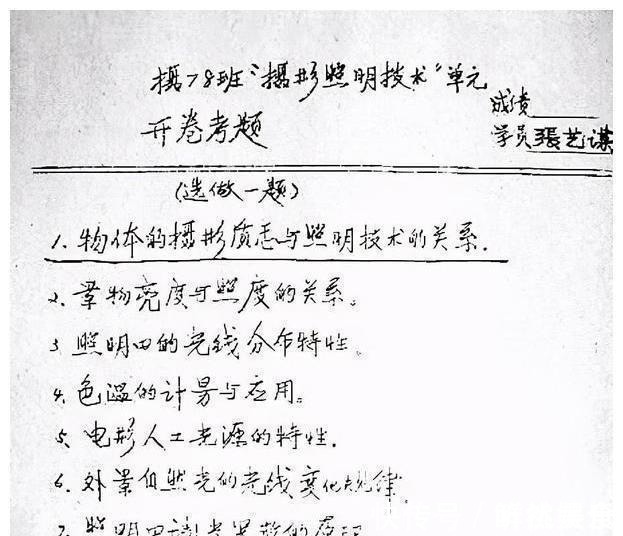 摄78班“摄影照明技术”单元
成绩
开卷考题
学员 張艺谋
(选做一题)
1. 物体的摄影质态与照明技术的关系.
2. 景物亮度与照度的关系。
3. 照明四的光线分布特性。
4. 色温的计算与应用。
5. 电影人工光源的特性.
6. 外景自然光的光线变化规律
7. 照明